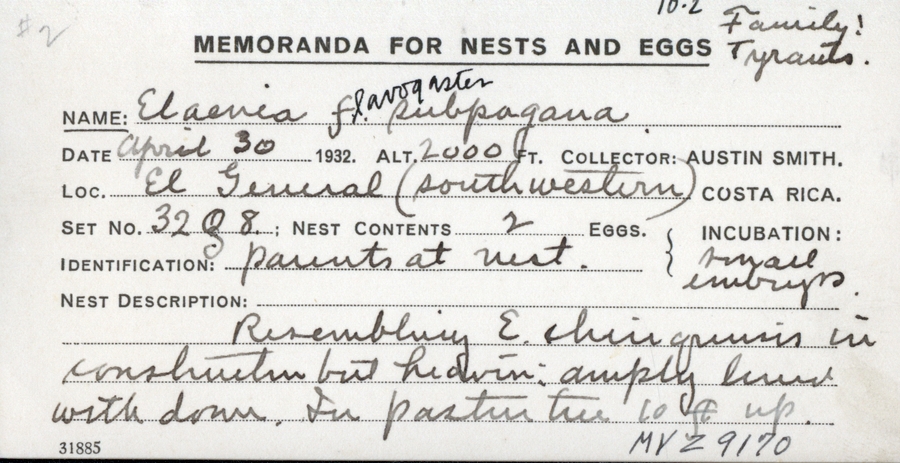 #2
10-2
Family:
MEMORANDA FOR NESTS AND EGGS Tyrants.
NAME: Elaenia f. subpagana.
flavogaster
DATE April 30 1932. ALT. 2000 FT. COLLECTOR: AUSTIN SMITH.
LOC. El General (southwestern) COSTA RICA.
SET NO. 32 8.; NEST CONTENTS 2 EGGS. INCUBATION:
IDENTIFICATION: parents at nest. { small
embryos.
NEST DESCRIPTION:
Resembling E. chiriquensis in
construction but heavier: amply lined
with down. In pasture tree 10 ft up.
31885 MVZ 9170